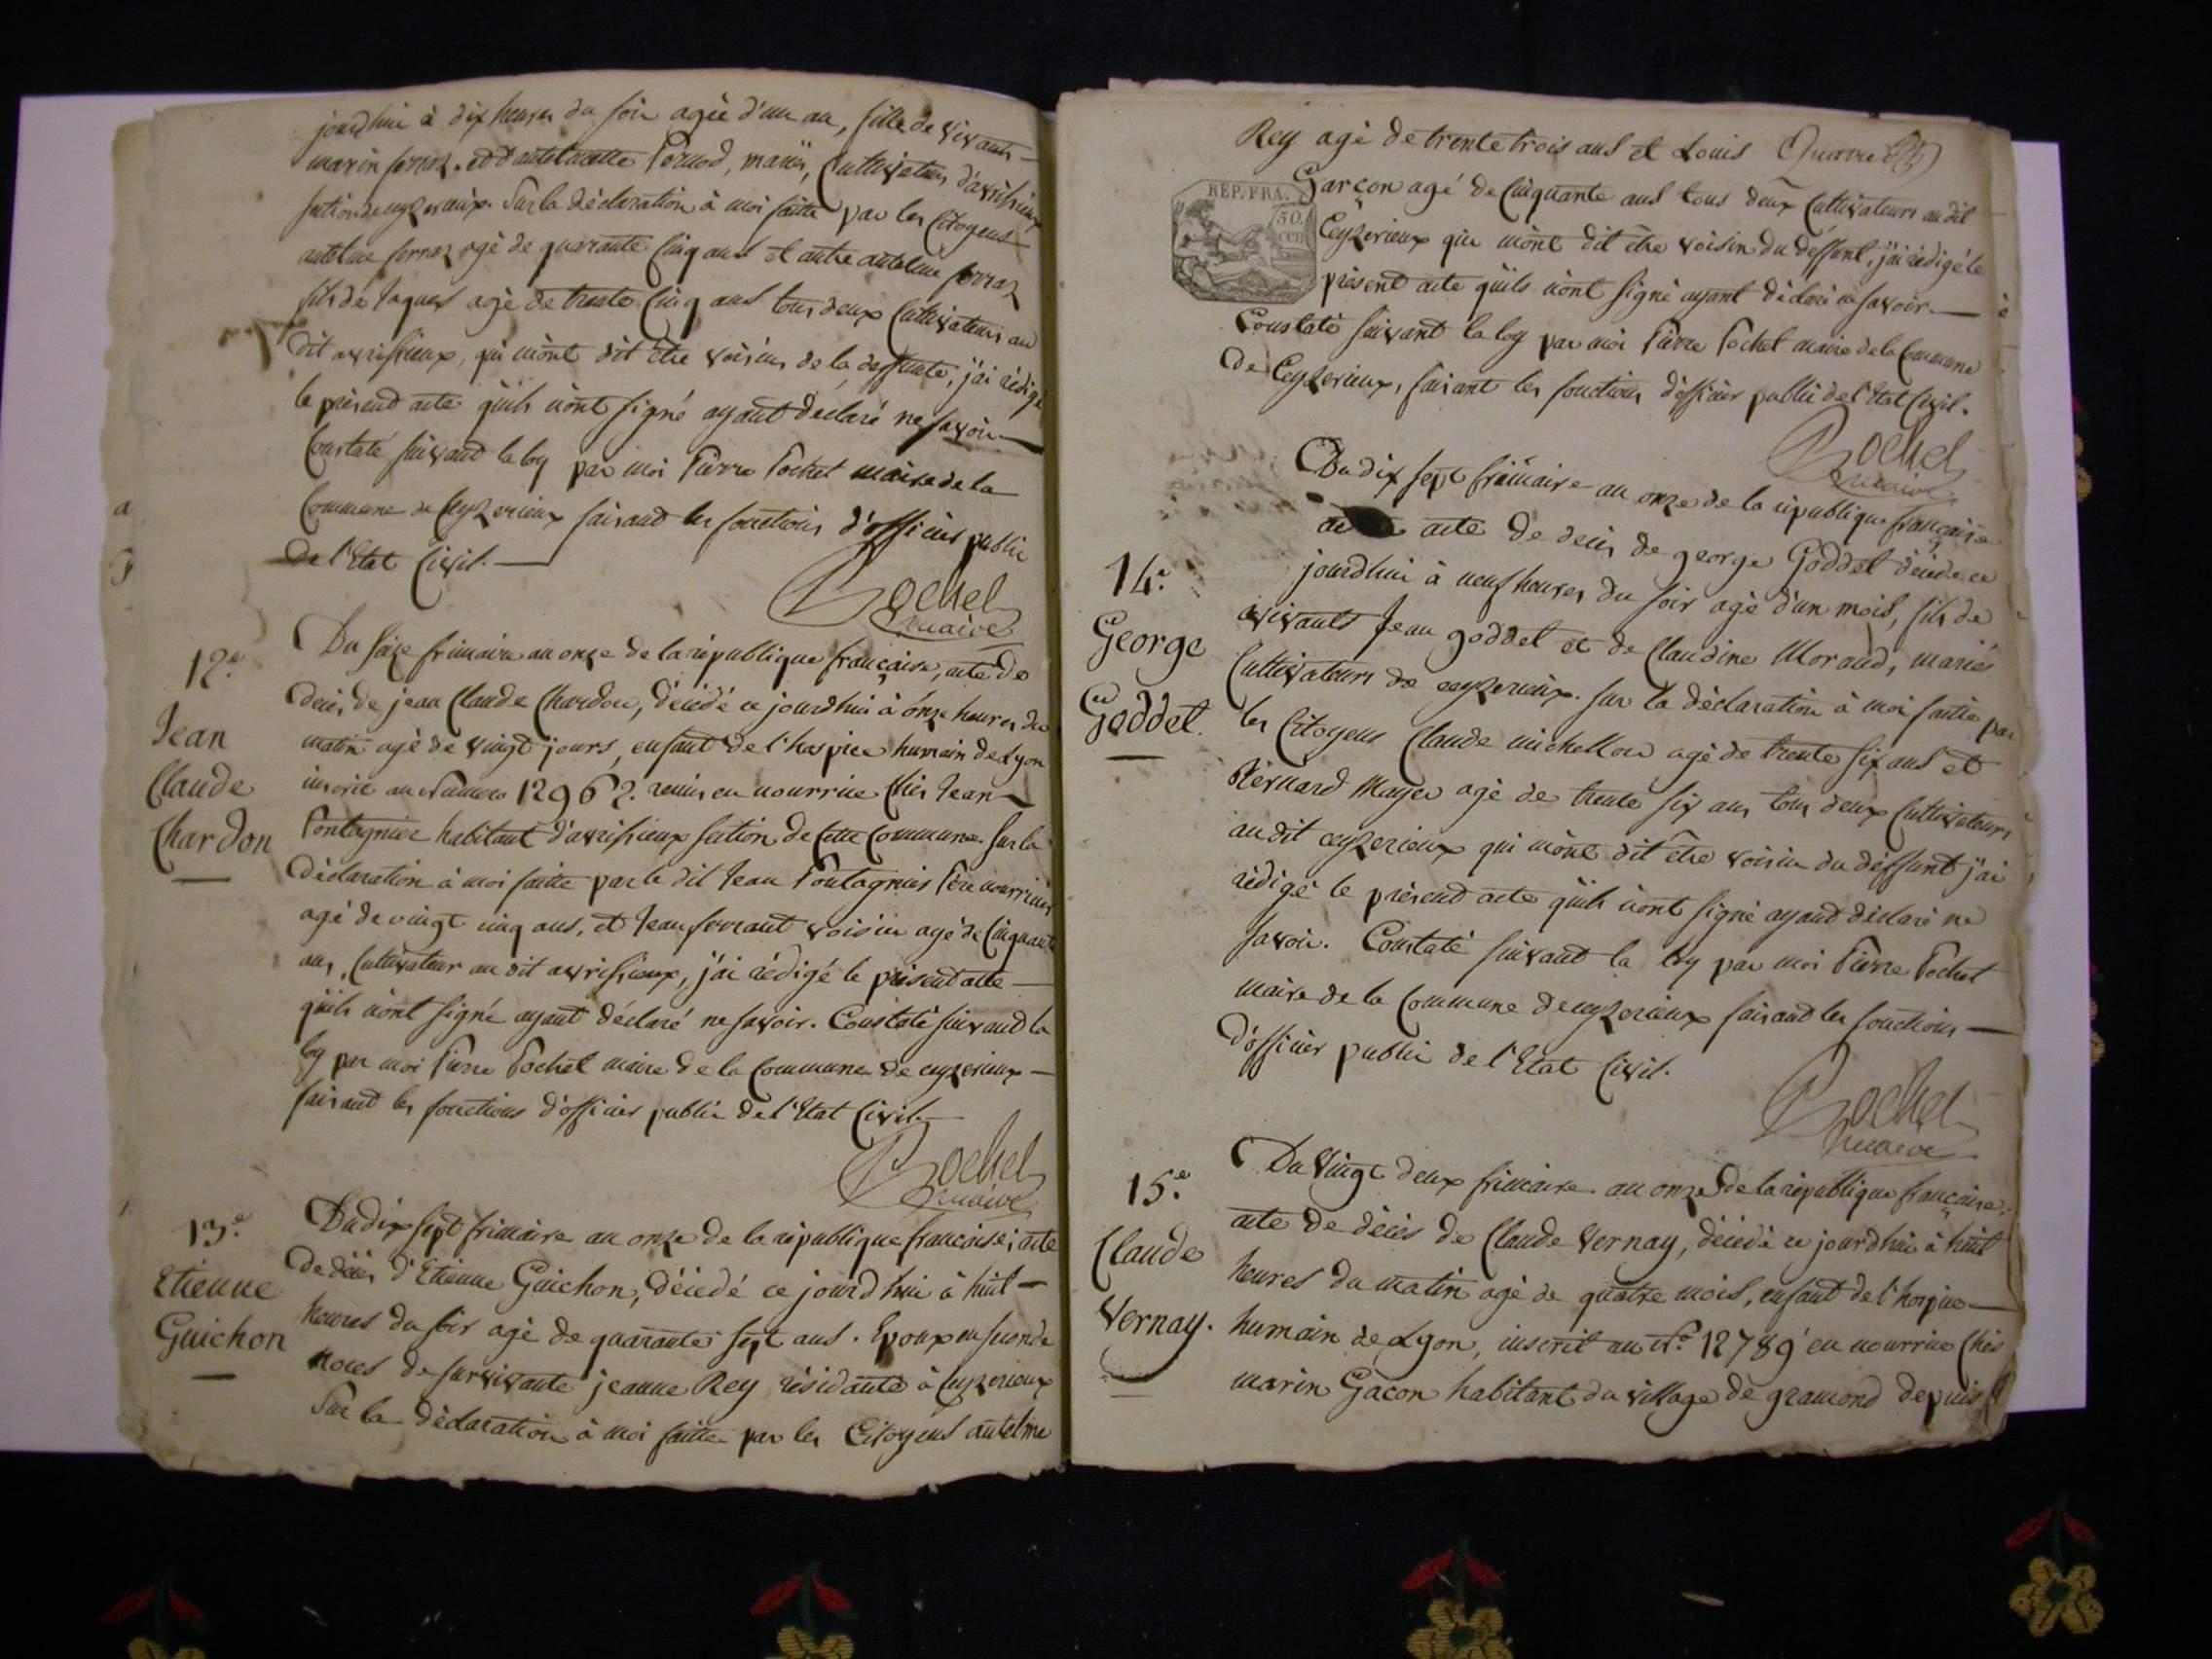 jourdhui à dix heures du soir agée d'un an, fille de vivants
marin ferraz. et d'antelmette Pernod, mariés, Cultivateurs d'avrissieux
section de ceyzerieux. Sur la déclaration à moi faitte par les Citoyens
antelme ferraz agé de quarante Cinq ans et autre antelme ferraz
fils de Jaques agé de trente Cinq ans tous deux Cultivateurs au
dit avrissieux, qui m'ont dit être voisins de la deffunte, j'ai rédigé
le présend acte qu'ils n'ont signé ayant déclaré ne savoir
Constaté suivant la loy par moi Pierre Pochet maire de la
Commune de Ceyzerieux faisand les fonctions d'officier public
de l'Etat Civil.
Pochet
maire
12.e
Jean
Claude
Chardon
Du seize frimaire an onze de la république française, acte de
décès de jean Claude Chardon, décédé ce jourdhui à onze heures du
matin agé de vingt jours, enfant de l'hospice humain de Lyon
inscrit au Numero 12962. remis en nourrice chés Jean
Pontagnier habitant d'avrissieux section de Cette Commune. Sur la
Déclaration à moi faitte par le dit Jean Pontagnier Père nourricier
agé de vingt cinq ans, et Jean ferrant voisin agé de Cinquante
ans, Cultivateur au dit avrissieux, j'ai rédigé le présent acte
qu'ils n'ont signé ayant déclaré ne savoir. Constaté suivand la
loy par moi Pierre Pochet maire de la Commune de ceyzerieux
faisand les fonctions d'officier public de l'Etat Civil.
Pochet
maire
13.e
Etienne
Guichon
Du dix sept frimaire an onze de la république française, acte
de décès d'Etienne Guichon, décédé ce jourd'hui à huit
heures du soir agé de quarante sept ans. Epoux en seconde
noces de survivante jeanne Rey résidante à Ceyzerieux
Sur la déclaration à moi faitte par les Citoyens antelme
Rey agé de trente trois ans et Louis Quatre
REP. FRA.
50.
cen
Garçon agé de Cinquante ans tous deux Cultivateurs au dit
Ceyzerieux qui m'ont dit être voisin du déffunt, j'ai rédigé le
présent acte qu'ils n'ont signé ayant déclaré ne savoir.
Constaté suivant la loy par moi Pierre Pochet maire de la Commune
de Ceyzerieux, faisant les fonctions d'officier public de l'Etat Civil.
Pochet
maire
14.e
George
Goddet.
Du dix sept frimaire an onze de la république française
acte de decès de george Goddet décédé ce
jourdhui à neuf heures du soir agé d'un mois, fils de
vivants Jean goddet et de Claudine Morand, mariés
Cultivateurs de ceyzerieux. sur la déclaration à moi faitte par
les Citoyens Claude michellon agé de trente six ans et
Bernard Mayer agé de trente six ans tous deux Cultivateurs
au dit ceyzerieux qui m'ont dit être voisin du déffunt j'ai
rédigé le présend acte qu'ils n'ont signé ayand déclaré ne
savoir. Constaté suivant la loy par moi Pierre Pochet
maire de la Commune de ceyzerieux faisand les fonctions
d'officier public de l'Etat Civil.
Pochet
maire
15.e
Claude
Vernay.
Du Vingt deux frimaire. an onze de la république française.
acte de décès de Claude Vernay, décédé ce jourdhui à huit
heures du matin agé de quatre mois, enfant de l'hospice
humain de Lyon, inscrit au N.o 12789 en nourrice chés
marin Gacon habitant du village de gramond depuis